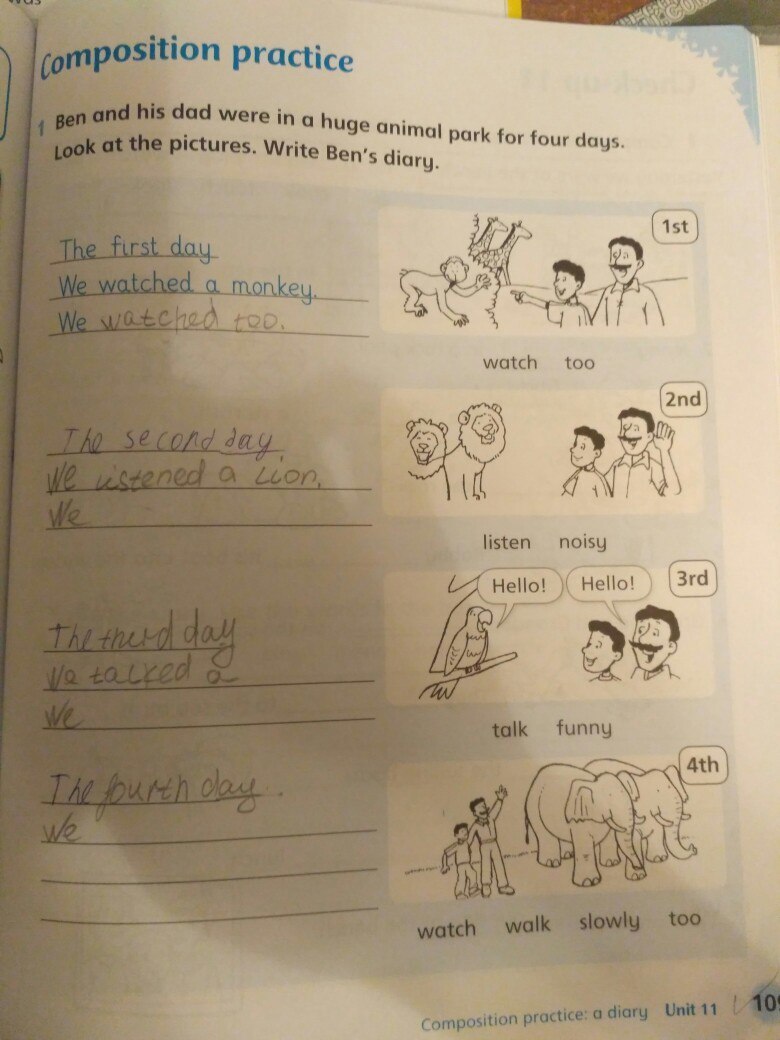 Composition practice
1 Ben and his dad were in a huge animal park for four days.
Look at the pictures. Write Ben's diary.
The first day
We watched a monkey.
We watched too.
1st
watch too
The second day
We listened a Lion.
We
2nd
listen noisy
The therd day
We talked a
We
Hello! Hello!
3rd
talk funny
The fourth day.
We
4th
watch walk slowly too
Composition practice: a diary Unit 11 109